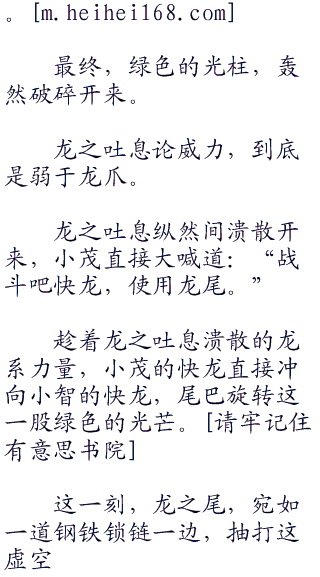 。[m.heihei168.com]
最终，绿色的光柱，轰
然破碎开来。
龙之吐息论威力，到底
是弱于龙爪。
龙之吐息纵然间溃散开
来，小茂直接大喊道：“战
斗吧快龙，使用龙尾。”
趁着龙之吐息溃散的龙
系力量，小茂的快龙直接冲
向小智的快龙，尾巴旋转这
一股绿色的光芒。[请牢记住
有意思书院]
这一刻，龙之尾，宛如
一道钢铁锁链一边，抽打这
虚空